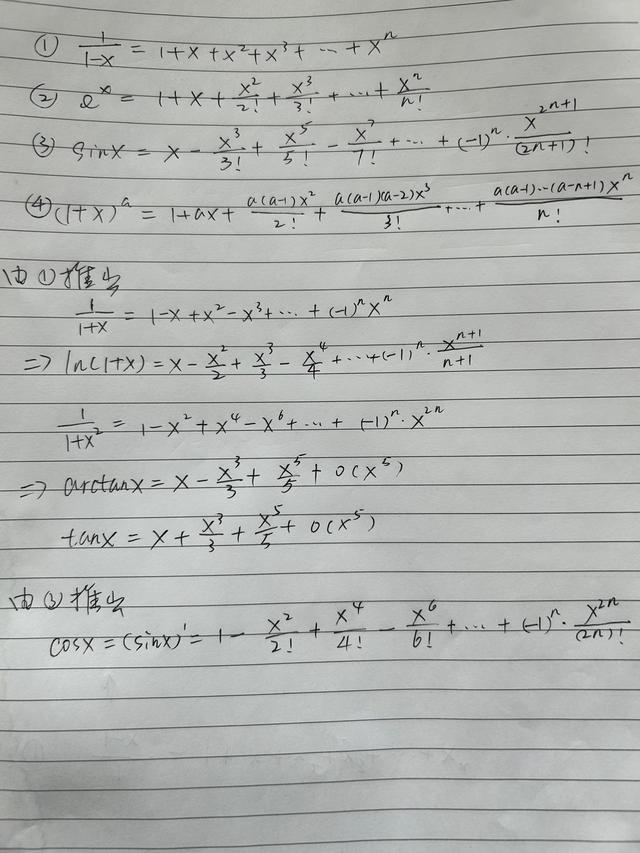 ① 1/(1-x) = 1+x+x²+x³+…+xⁿ
② eˣ = 1+x+x²/2!+x³/3!+…+xⁿ/n!
③ sinx = x - x³/3! + x⁵/5! - x⁷/7! +…+ (-1)ⁿ · x²ⁿ⁺¹/(2n+1)!
④ (1+x)ᵃ = 1+ax+ a(a-1)x²/2! + a(a-1)(a-2)x³/3! +…+ a(a-1)…(a-n+1)xⁿ/n!
由①推出
1/(1+x) = 1-x+x²-x³+…+(-1)ⁿxⁿ
⇒ ln(1+x) = x - x²/2 + x³/3 - x⁴/4 +…+(-1)ⁿ · xⁿ⁺¹/(n+1)
1/(1+x²) = 1-x²+x⁴-x⁶+…+ (-1)ⁿ · x²ⁿ
⇒ arctanx = x - x³/3 + x⁵/5 + o(x⁵)
tanx = x + x³/3 + x⁵/5 + o(x⁵)
由③推出
cosx = (sinx)' = 1 - x²/2! + x⁴/4! - x⁶/6! +…+ (-1)ⁿ · x²ⁿ/(2n)!